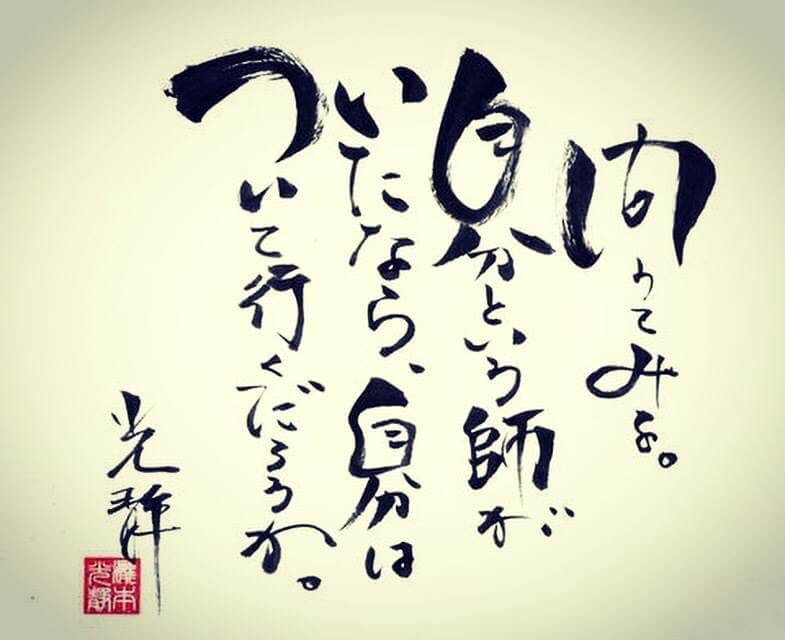 問うてみよ。
自分という師が
いたなら、自分は
ついて行くだろうか。
光静
瀧本
光静